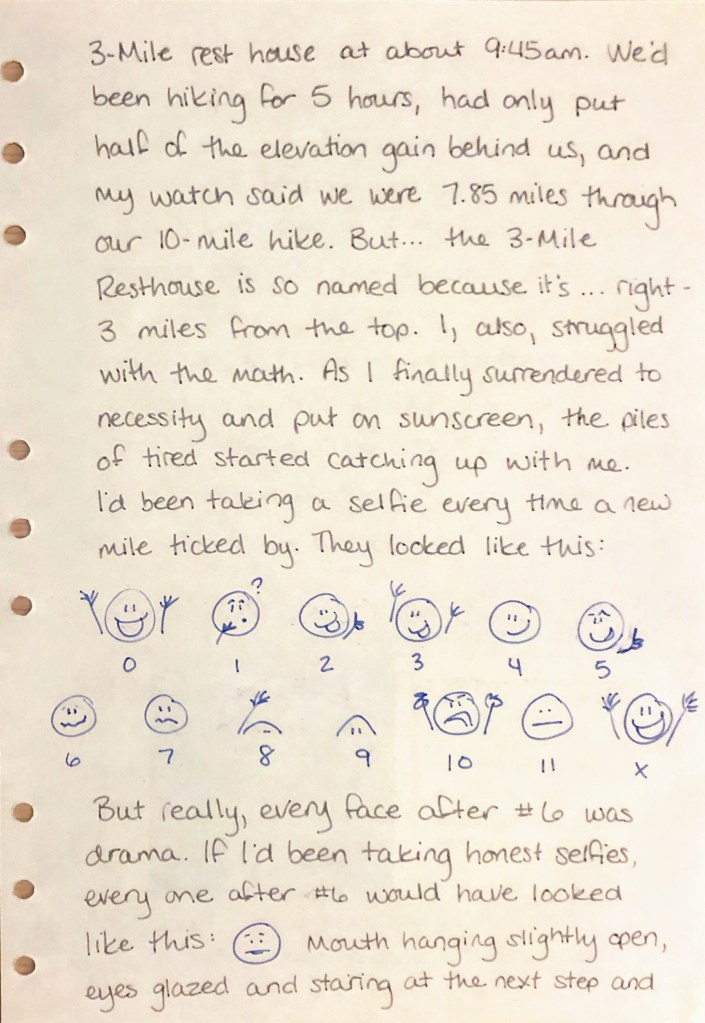 3-Mile rest house at about 9:45am. We'd
been hiking for 5 hours, had only put
half of the elevation gain behind us, and
my watch said we were 7.85 miles through
our 10-mile hike. But... the 3-Mile
Resthouse is so named because it's... right-
3 miles from the top. I, also, struggled
with the math. As I finally surrendered to
necessity and put on sunscreen, the piles
of tired started catching up with me.
I'd been taking a selfie every time a new
mile ticked by. They looked like this:
?
0 1 2 3 4 5
6 7 8 9 10 11 x
But really, every face after #6 was
drama. If I'd been taking honest selfies,
every one after #6 would have looked
like this: Mouth hanging slightly open,
eyes glazed and staring at the next step and